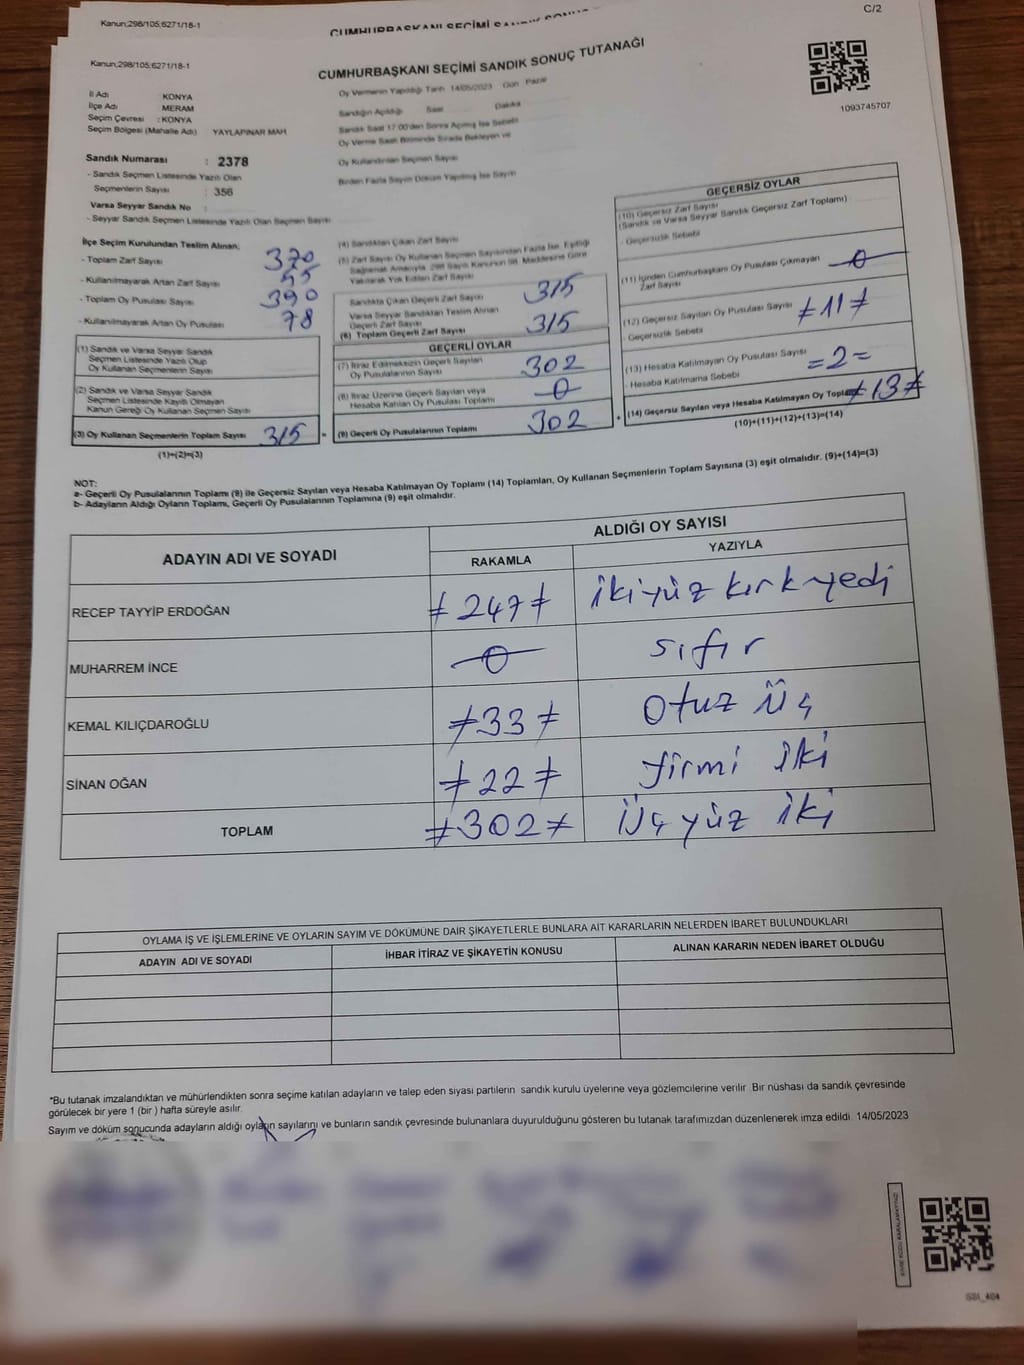 Kanun;298/105;6271/18-1
C/2
Kanun;298/105;6271/18-1
CUMHURBAŞKANI SEÇİMİ SANDIK SONUÇ TUTANAĞI
Oy Vermenin Yapıldığı Tarih 14/05/2023 Gün Pazar
İl Adı : KONYA
İlçe Adı : MERAM
Seçim Çevresi : KONYA
Seçim Bölgesi (Mahalle Adı) YAYLAPINAR MAH
Sandığın Açıldığı Saat Dakika
Sandık Saat 17:00'den Sonra Açılmış İse Sebebi
Oy Verme Saati Bitiminde Sırada Bekleyen ve
Oy Kullandırılan Seçmen Sayısı
Birden Fazla Sayım Döküm Yapılmış İse Sayım
1093745707
Sandık Numarası : 2378
- Sandık Seçmen Listesinde Yazılı Olan
Seçmenlerin Sayısı : 356
Varsa Seyyar Sandık No :
- Seyyar Sandık Seçmen Listesinde Yazılı Olan Seçmen Sayısı
İlçe Seçim Kurulundan Teslim Alınan;
- Toplam Zarf Sayısı 370
- Kullanılmayarak Artan Zarf Sayısı 55
- Toplam Oy Pusulası Sayısı 390
- Kullanılmayarak Artan Oy Pusulası 78
(1) Sandık ve Varsa Seyyar Sandık
Seçmen Listesinde Yazılı Olup
Oy Kullanan Seçmenlerin Sayısı
(2) Sandık ve Varsa Seyyar Sandık
Seçmen Listesinde Kayıtlı Olmayan
Kanun Gereği Oy Kullanan Seçmen Sayısı
(3) Oy Kullanan Seçmenlerin Toplam Sayısı 315
(1)+(2)=(3)
(4) Sandıktan Çıkan Zarf Sayısı
(5) Zarf Sayısı Oy Kullanan Seçmen Sayısından Fazla İse, Eşitliği
Sağlamak Amacıyla, 298 Sayılı Kanunun 98. Maddesine Göre
Yakılarak Yok Edilen Zarf Sayısı
Sandıkta Çıkan Geçerli Zarf Sayısı 315
Varsa Seyyar Sandıktan Teslim Alınan
Geçerli Zarf Sayısı
(6) Toplam Geçerli Zarf Sayısı 315
GEÇERLİ OYLAR
(7) İtiraz Edilmeksizin Geçerli Sayılan
Oy Pusulalarının Sayısı 302
(8) İtiraz Üzerine Geçerli Sayılan veya
Hesaba Katılan Oy Pusulası Toplamı 0
(9) Geçerli Oy Pusulalarının Toplamı 302
GEÇERSİZ OYLAR
(10) Geçersiz Zarf Sayısı
(Sandık ve Varsa Seyyar Sandık Geçersiz Zarf Toplamı)
- Geçersizlik Sebebi
(11) İçinden Cumhurbaşkanı Oy Pusulası Çıkmayan
Zarf Sayısı 0
(12) Geçersiz Sayılan Oy Pusulası Sayısı ≠11≠
- Geçersizlik Sebebi
(13) Hesaba Katılmayan Oy Pusulası Sayısı =2=
- Hesaba Katılmama Sebebi
(14) Geçersiz Sayılan veya Hesaba Katılmayan Oy Toplamı ≠13≠
(10)+(11)+(12)+(13)=(14)
NOT:
a- Geçerli Oy Pusulalarının Toplamı (9) ile Geçersiz Sayılan veya Hesaba Katılmayan Oy Toplamı (14) Toplamları, Oy Kullanan Seçmenlerin Toplam Sayısına (3) eşit olmalıdır. (9)+(14)=(3)
b- Adayların Aldığı Oyların Toplamı, Geçerli Oy Pusulalarının Toplamına (9) eşit olmalıdır.
ADAYIN ADI VE SOYADI
ALDIĞI OY SAYISI
RAKAMLA YAZIYLA
RECEP TAYYİP ERDOĞAN ≠247≠ ikiyüz kırk yedi
MUHARREM İNCE 0 sıfır
KEMAL KILIÇDAROĞLU ≠33≠ otuz üç
SİNAN OĞAN ≠22≠ yirmi iki
TOPLAM ≠302≠ üçyüz iki
OYLAMA İŞ VE İŞLEMLERİNE VE OYLARIN SAYIM VE DÖKÜMÜNE DAİR ŞİKAYETLERLE BUNLARA AİT KARARLARIN NELERDEN İBARET BULUNDUKLARI
ADAYIN ADI VE SOYADI
İHBAR İTİRAZ VE ŞİKAYETİN KONUSU
ALINAN KARARIN NEDEN İBARET OLDUĞU
*Bu tutanak imzalandıktan ve mühürlendikten sonra seçime katılan adayların ve talep eden siyasi partilerin sandık kurulu üyelerine veya gözlemcilerine verilir. Bir nüshası da sandık çevresinde
görülecek bir yere 1 (bir) hafta süreyle asılır.
Sayım ve döküm sonucunda adayların aldığı oyların sayılarını ve bunların sandık çevresinde bulunanlara duyurulduğunu gösteren bu tutanak tarafımızdan düzenlenerek imza edildi. 14/05/2023